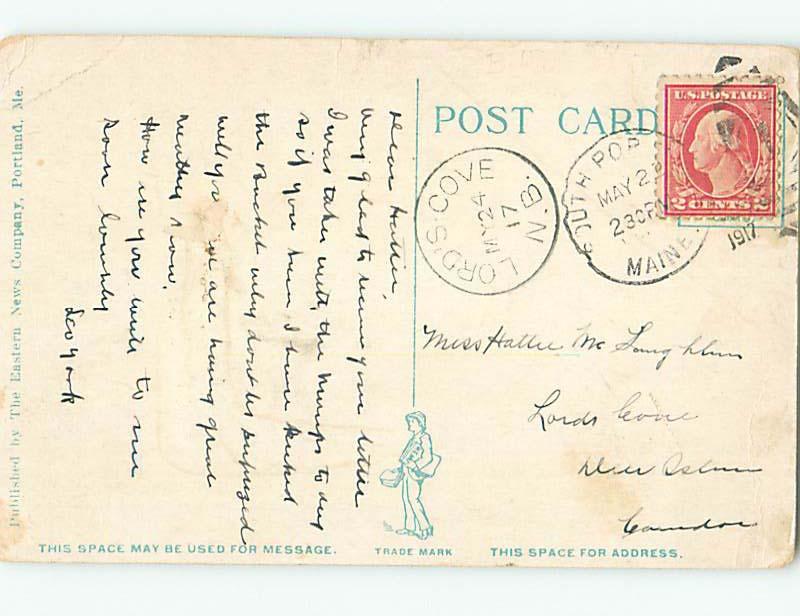 POST CARD
U.S. POSTAGE
2 CENTS 2
SOUTH POR
MAY 2
230PM
MAINE
1917
LORD'S COVE
MY 24
17
N.B.
Dear Hattie,
Very glad to receive your letter
I was taken with the Mumps to day
so if you hear I have kicked
the Bucket why dont be surprized
will you we are having great
weather now.
How are you write to me
soon lovingly
Leo York
Miss Hattie Mc Laughlin
Lords Cove
Deer Island
Canada
Published by The Eastern News Company, Portland, Me.
THIS SPACE MAY BE USED FOR MESSAGE.
TRADE MARK
THIS SPACE FOR ADDRESS.